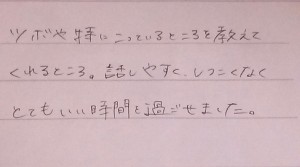 ツボや特にこっているところを教えて
くれるところ。話しやすく、しつこくなく
とてもいい時間を過ごせました。